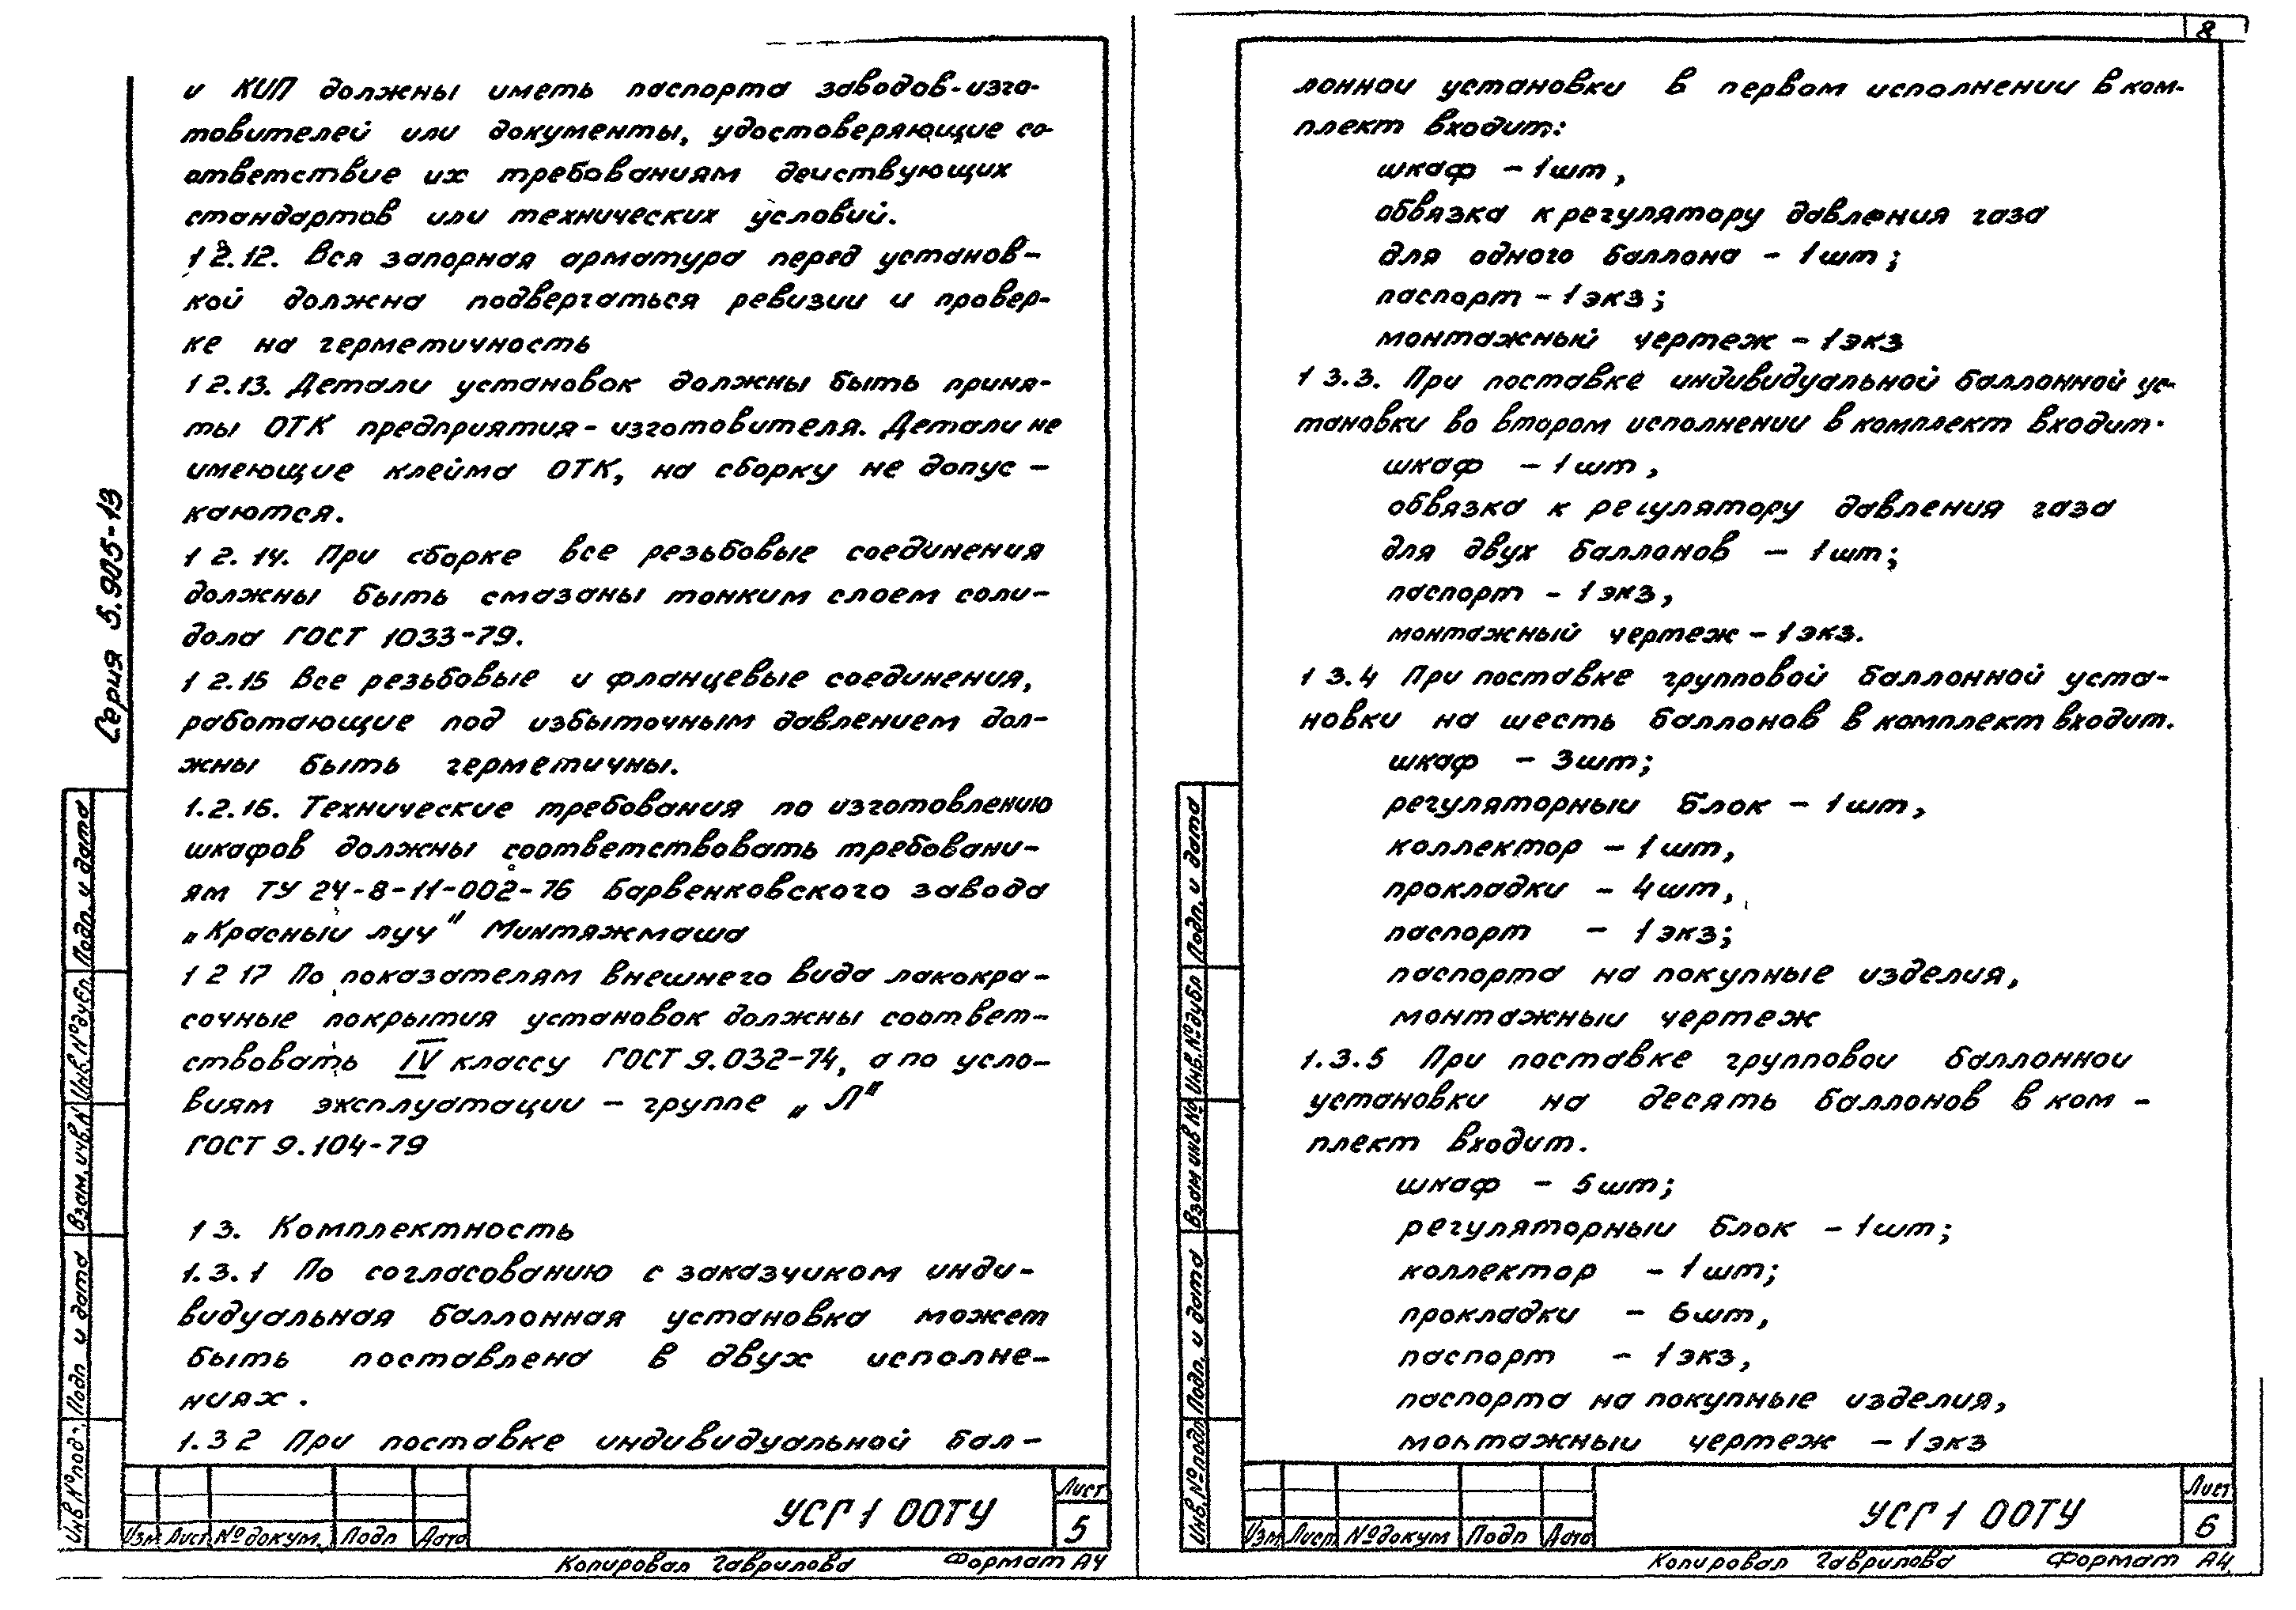 и КИП должны иметь паспорта заводов-изго-
товителей или документы, удостоверяющие со-
ответствие их требованиям действующих
стандартов или технических условий.
1 2.12. Вся запорная арматура перед установ-
кой должна подвергаться ревизии и провер-
ке на герметичность
1 2.13. Детали установок должны быть приня-
ты ОТК предприятия-изготовителя. Детали не
имеющие клейма ОТК, на сборку не допус-
каются.
1 2.14. При сборке все резьбовые соединения
должны быть смазаны тонким слоем соли-
дола ГОСТ 1033-79.
1 2.15 Все резьбовые и фланцевые соединения,
работающие под избыточным давлением дол-
жны быть герметичны.
1.2.16. Технические требования по изготовлению
шкафов должны соответствовать требовани-
ям ТУ 24-8-11-002-76 Барвенковского завода
„Красный луч" Минтяжмаша
1 2 17 По показателям внешнего вида лакокра-
сочные покрытия установок должны соответ-
ствовать IV классу ГОСТ 9.032-74, а по усло-
виям эксплуатации - группе „Л"
ГОСТ 9.104-79
1 3. Комплектность
1.3.1 По согласованию с заказчиком инди-
видуальная баллонная установка может
быть поставлена в двух исполне-
ниях.
1.3 2 При поставке индивидуальной бал-
Серия 5.905-13
Подп. и дата
Инв.№дубл.
Взам.инв.№
Подп. и дата
Инв №подп.
Изм Лист №докум. Подп Дата
УСГ 1 00ТУ
Лист
5
Копировал Гаврилова Формат А4
8
лоннои установки в первом исполнении в ком-
плект входит:
шкаф - 1 шт,
обвязка к регулятору давления газа
для одного баллона - 1 шт;
паспорт - 1 экз;
монтажный чертеж - 1 экз
1 3.3. При поставке индивидуальной баллонной ус-
тановки во втором исполнении в комплект входит.
шкаф - 1 шт,
обвязка к регулятору давления газа
для двух баллонов - 1 шт;
паспорт - 1 экз,
монтажный чертеж - 1 экз.
1 3.4 При поставке групповой баллонной уста-
новки на шесть баллонов в комплект входит.
шкаф - 3 шт;
регуляторныи блок - 1 шт,
коллектор - 1 шт,
прокладки - 4 шт,
паспорт - 1 экз;
паспорта на покупные изделия,
монтажныи чертеж
1.3.5 При поставке групповои баллоннои
установки на десять баллонов в ком-
плект входит.
шкаф - 5 шт;
регуляторныи блок - 1 шт;
коллектор - 1 шт;
прокладки - 6 шт,
паспорт - 1 экз,
паспорта на покупные изделия,
монтажныи чертеж - 1 экз
Подп. и дата
Инв.№дубл
Взам инв №
Подп. и дата
Инв.№подп
Изм Лист №докум Подп Дата
УСГ 1 00ТУ
Лист
6
Копировал Гаврилова Формат А4